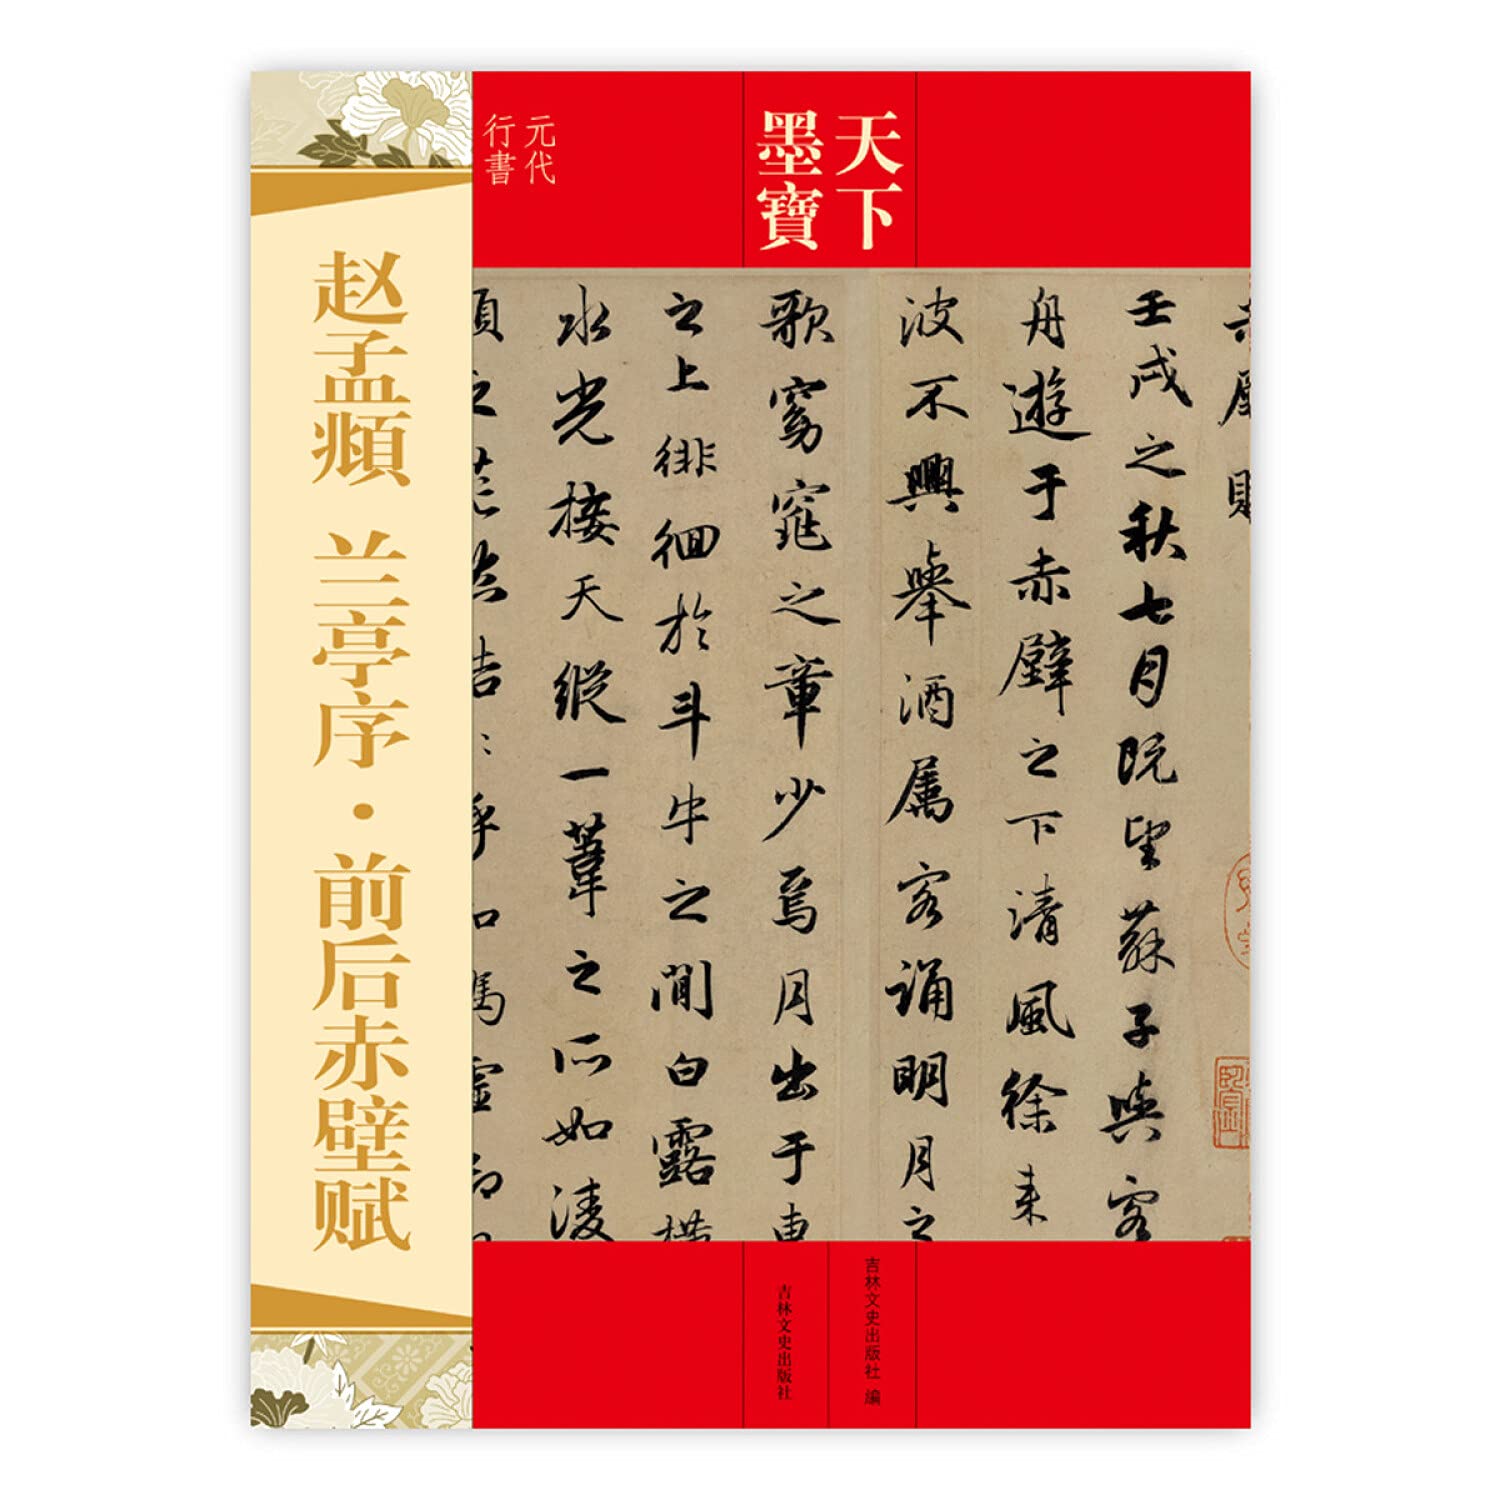 天下
墨寶
元代
行書
赵孟頫 兰亭序·前后赤壁赋
赤壁賦
壬戌之秋七月既望蘇子與客
舟遊于赤壁之下清風徐来
波不興舉酒属客誦明月之
歌窈窕之章少焉月出于東
之上徘徊於斗牛之間白露橫
水光接天縱一葦之所如淩
頃之茫然浩〻乎如馮虛御
吉林文史出版社 编
吉林文史出版社